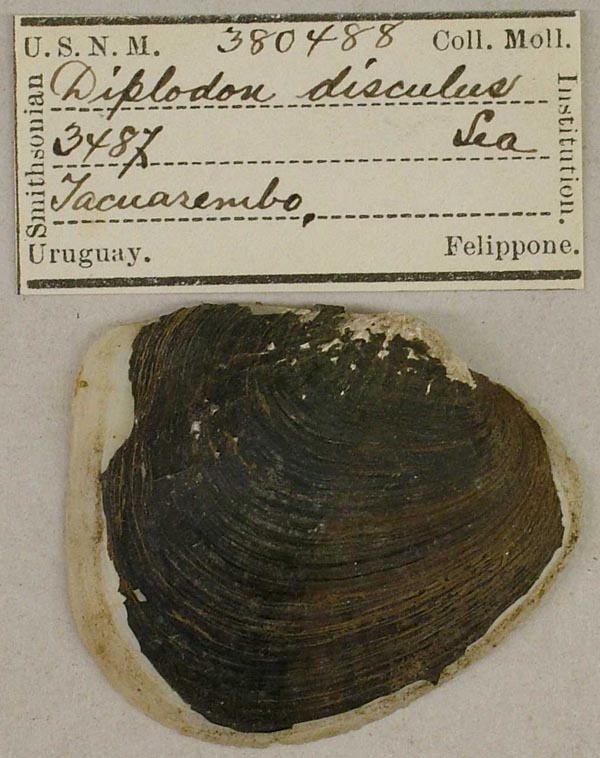 U. S. N. M. 380488 Coll. Moll.
Smithsonian
Diplodon disculus
3487 Lea
Tacuarembo,
Institution.
Uruguay. Felippone.